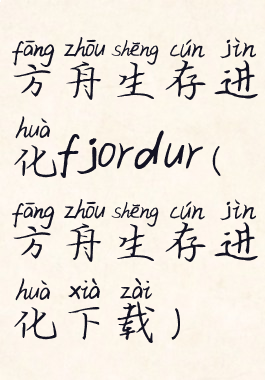 fāng zhōu shēng cún jìn
方舟生存进
huà
化fjordur(
fāng zhōu shēng cún jìn
方舟生存进
huà xià zài
化下载)